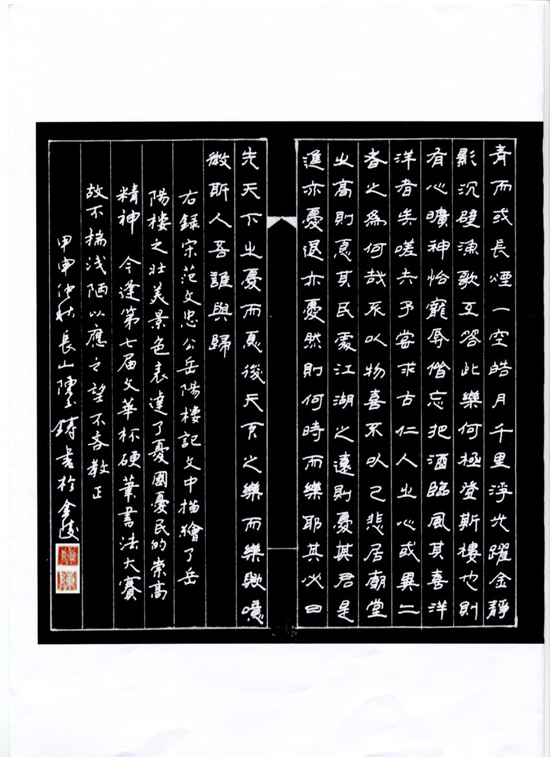 青而或長煙一空皓月千里浮光躍金靜
影沉璧漁歌互答此樂何極登斯樓也則
有心曠神怡寵辱偕忘把酒臨風其喜洋
洋者矣嗟夫予嘗求古仁人之心或異二
者之為何哉不以物喜不以己悲居廟堂
之高則憂其民處江湖之遠則憂其君是
進亦憂退亦憂然則何時而樂耶其必曰
先天下之憂而憂後天下之樂而樂歟噫
微斯人吾誰與歸
右錄宋范文忠公岳陽樓記文中描繪了岳
陽樓之壯美景色表達了憂國憂民的崇高
精神 今逢第七届文華杯硬筆書法大賽
故不揣淺陋以應之望不吝教正
甲申仲秋長山陳 鑄書於金陵